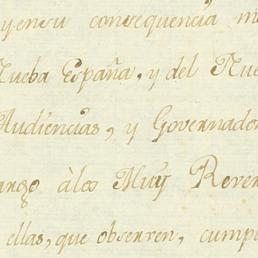 yensu consequencia m
Nueba España, y del Nue
Audiencias, y Governado
ango àlos Muy Rever
ellas, que observen, cump